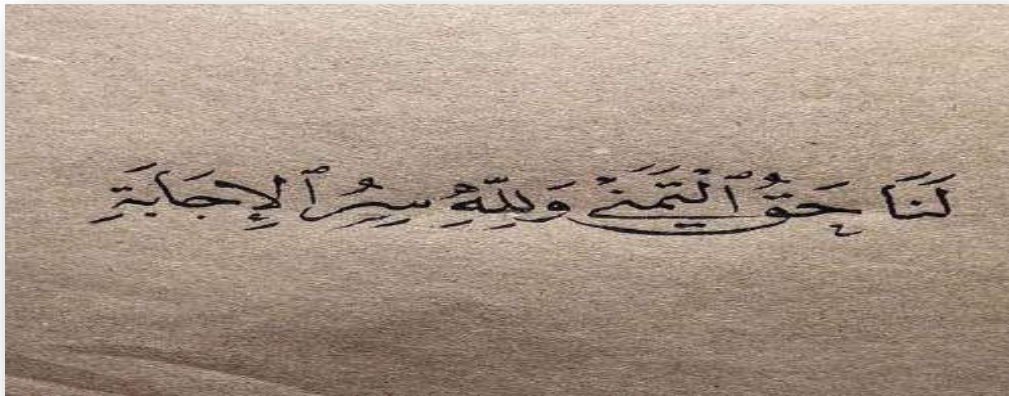 لَنَا حَقُّ ٱلْتَمَنِّي وَلِلَّهِ سِرُّ ٱلْإِجَابَةِ